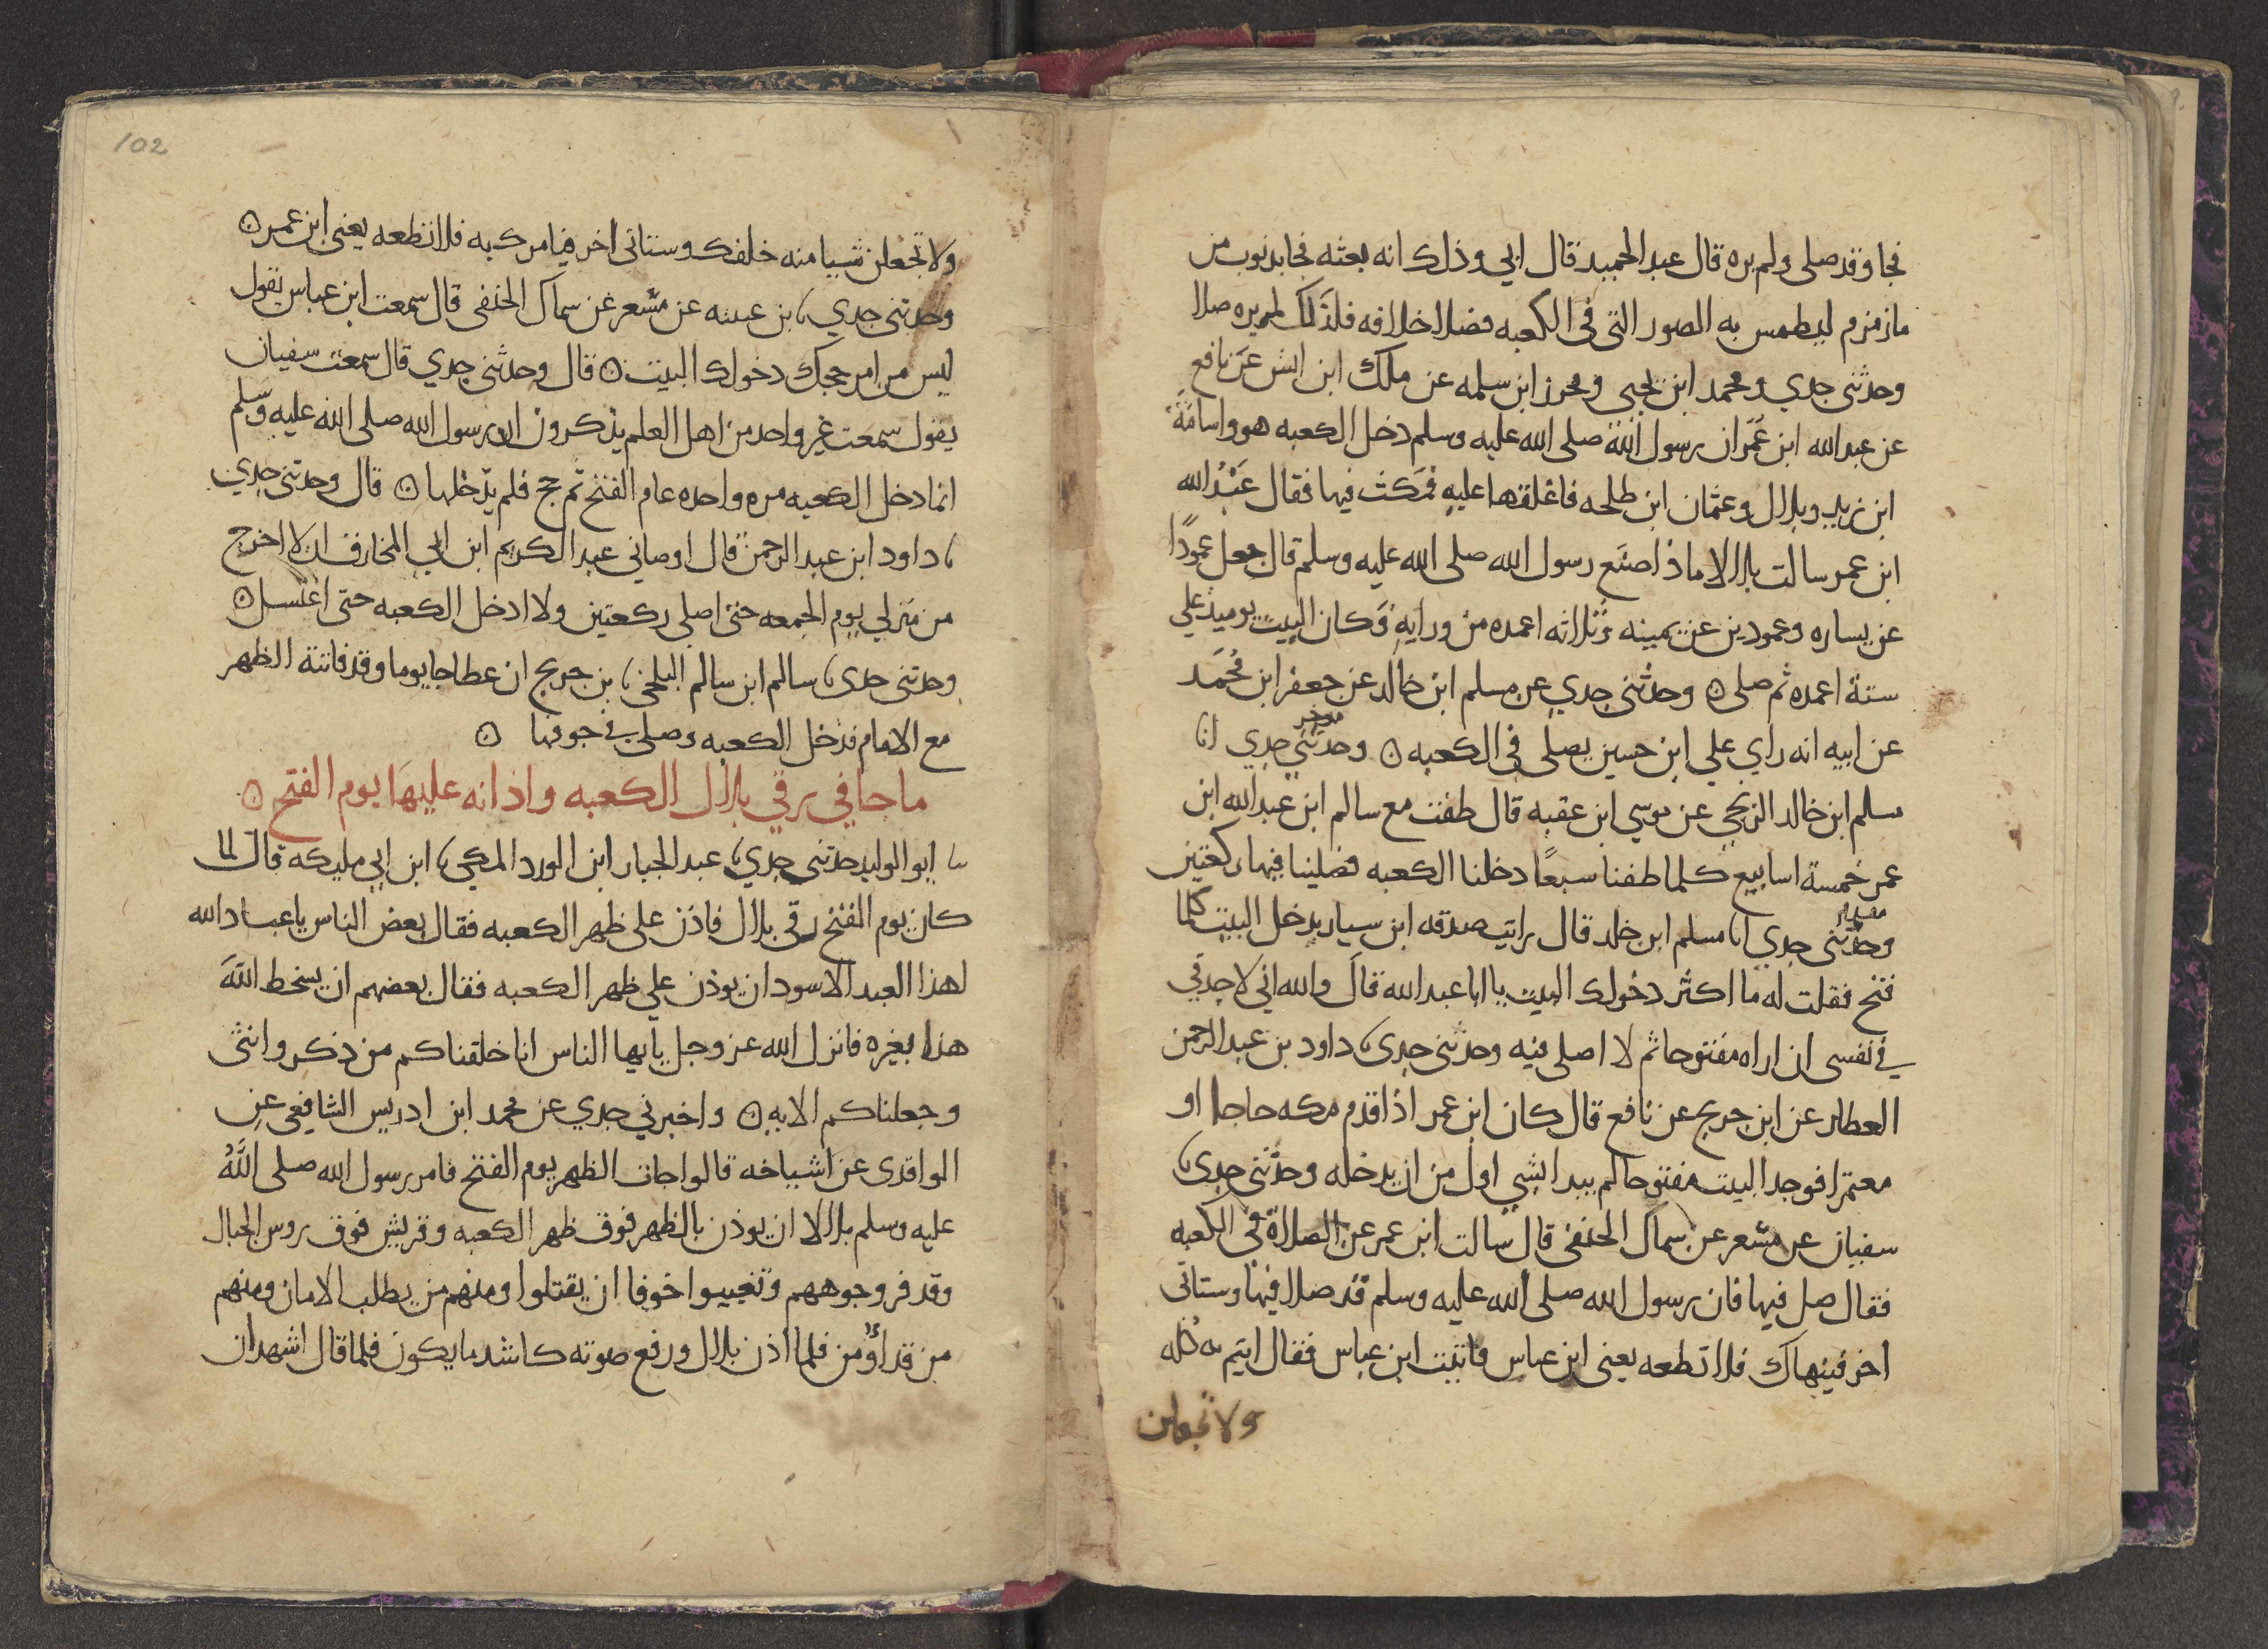 فجا وقد صلى ولم يره قال عبد الحميد قال ابي وذلك انه بعثه فجا بذنوب من
ما زمزم ليطمس به الصور التي في الكعبه فصلا خلافه فلذلك لم يره صلا
وحدثني جدي ومحمد ابن يحيى ومحرز ابن سلمه عن ملك ابن انس عن نافع
عن عبد الله ابن عمر ان رسول الله صلى الله عليه وسلم دخل الكعبه هو واسامة
ابن زيد وبلال وعثمان ابن طلحه فاغلقها عليه فمكث فيها فقال عبد الله
ابن عمر سالت بلالا ماذا صنع رسول الله صلى الله عليه وسلم قال جعل عمودًا
عن يساره وعمودين عن يمينه وثلاثه اعمده من ورايه وكان البيت يوميذ علي
ستة اعمده ثم صلى ۞ وحدثني جدي عن مسلم ابن خالد عن جعفر ابن محمد
عن ابيه انه راي علي ابن حسين يصلى في الكعبه ۞ وحدثني جدي انا
موخر
مسلم ابن خالد الزنجي عن موسي ابن عقبه قال طفت مع سالم ابن عبد الله ابن
عمر خمسة اسابيع كلما طفنا سبعًا دخلنا الكعبه فصلينا فيها ركعتين
مقدم
وحدثني جدي انا مسلم ابن خلد قال رايت صدقه ابن سيار يدخل البيت كلما
فتح فقلت له ما اكثر دخولك البيت يا ابا عبد الله قال والله اني لاجد في
في نفسى ان اراه مفتوحا ثم لا اصلى فيه وحدثني جدي ، داود بن عبد الرحمن
العطار عن ابن جريج عن نافع قال كان ابن عمر اذا قدم مكه حاجا او
معتمرا فوجد البيت مفتوحا لم يبدا بشي اول من ان يدخله وحدثني جدي ،
سفيان عن مسعر عن سماك الحنفي قال سالت ابن عمر عن الصلاة في الكعبه
فقال صل فيها فان رسول الله صلى الله عليه وسلم قد صلا فيها وستاتى
اخر فينهاك فلا تطعه يعنى ابن عباس فاتيت ابن عباس فقال ايتم به كله
ولا تجعلن
102
ولا تجعلن شيا منه خلفك وستاتى اخر فيامرك به فلا تطعه يعنى ابن عمر ۞
وحدثني جدي ، بن عيينه عن مسعر عن سماك الحنفي قال سمعت ابن عباس يقول
ليس من امر حجك دخولك البيت ۞ قال وحدثني جدي قال سمعت سفيان
يقول سمعت غير واحد من اهل العلم يذكرون ان رسول الله صلى الله عليه وسلم
انما دخل الكعبه مره واحده عام الفتح ثم حج فلم يدخلها ۞ قال وحدثني جدي
، داود ابن عبد الرحمن قال اوصاني عبد الكريم ابن ابي المخارق ان لا اخرج
من منزلي يوم الجمعه حتى اصلي ركعتين ولا ادخل الكعبه حتى اغتسل ۞
وحدثني جدي ، سالم ابن سالم البلخي ، بن جريج ان عطا جا يوما وقد فاتته الظهر
مع الامام فدخل الكعبه وصلى في جوفها ۞
ما جا في رقي بلال الكعبه واذانه عليها يوم الفتح ۞
سا ابو الوليد حدثني جدي ، عبد الجبار ابن الورد المكي ، ابن ابي مليكه قال لما
كان يوم الفتح رقى بلال فاذن على ظهر الكعبه فقال بعض الناس يا عباد الله
لهذا العبد الاسود ان يوذن علي ظهر الكعبه فقال بعضهم ان يسخط الله
هذا يغيره فانزل الله عز وجل يا يها الناس انا خلقناكم من ذكر وانثى
وجعلناكم الايه ۞ واخبرني جدي عن محمد ابن ادريس الشافعي عن
الواقدى عن اشياخه قالوا جات الظهر يوم الفتح فامر رسول الله صلى الله
عليه وسلم بلالا ان يوذن بالظهر فوق ظهر الكعبه وقريش فوق روس الجبال
وقد فر وجوههم وتغيبوا خوفا ان يقتلوا ومنهم من يطلب الامان ومنهم
من قد اومن فلما اذن بلال ورفع صوته كاشد ما يكون فلما قال اشهد ان